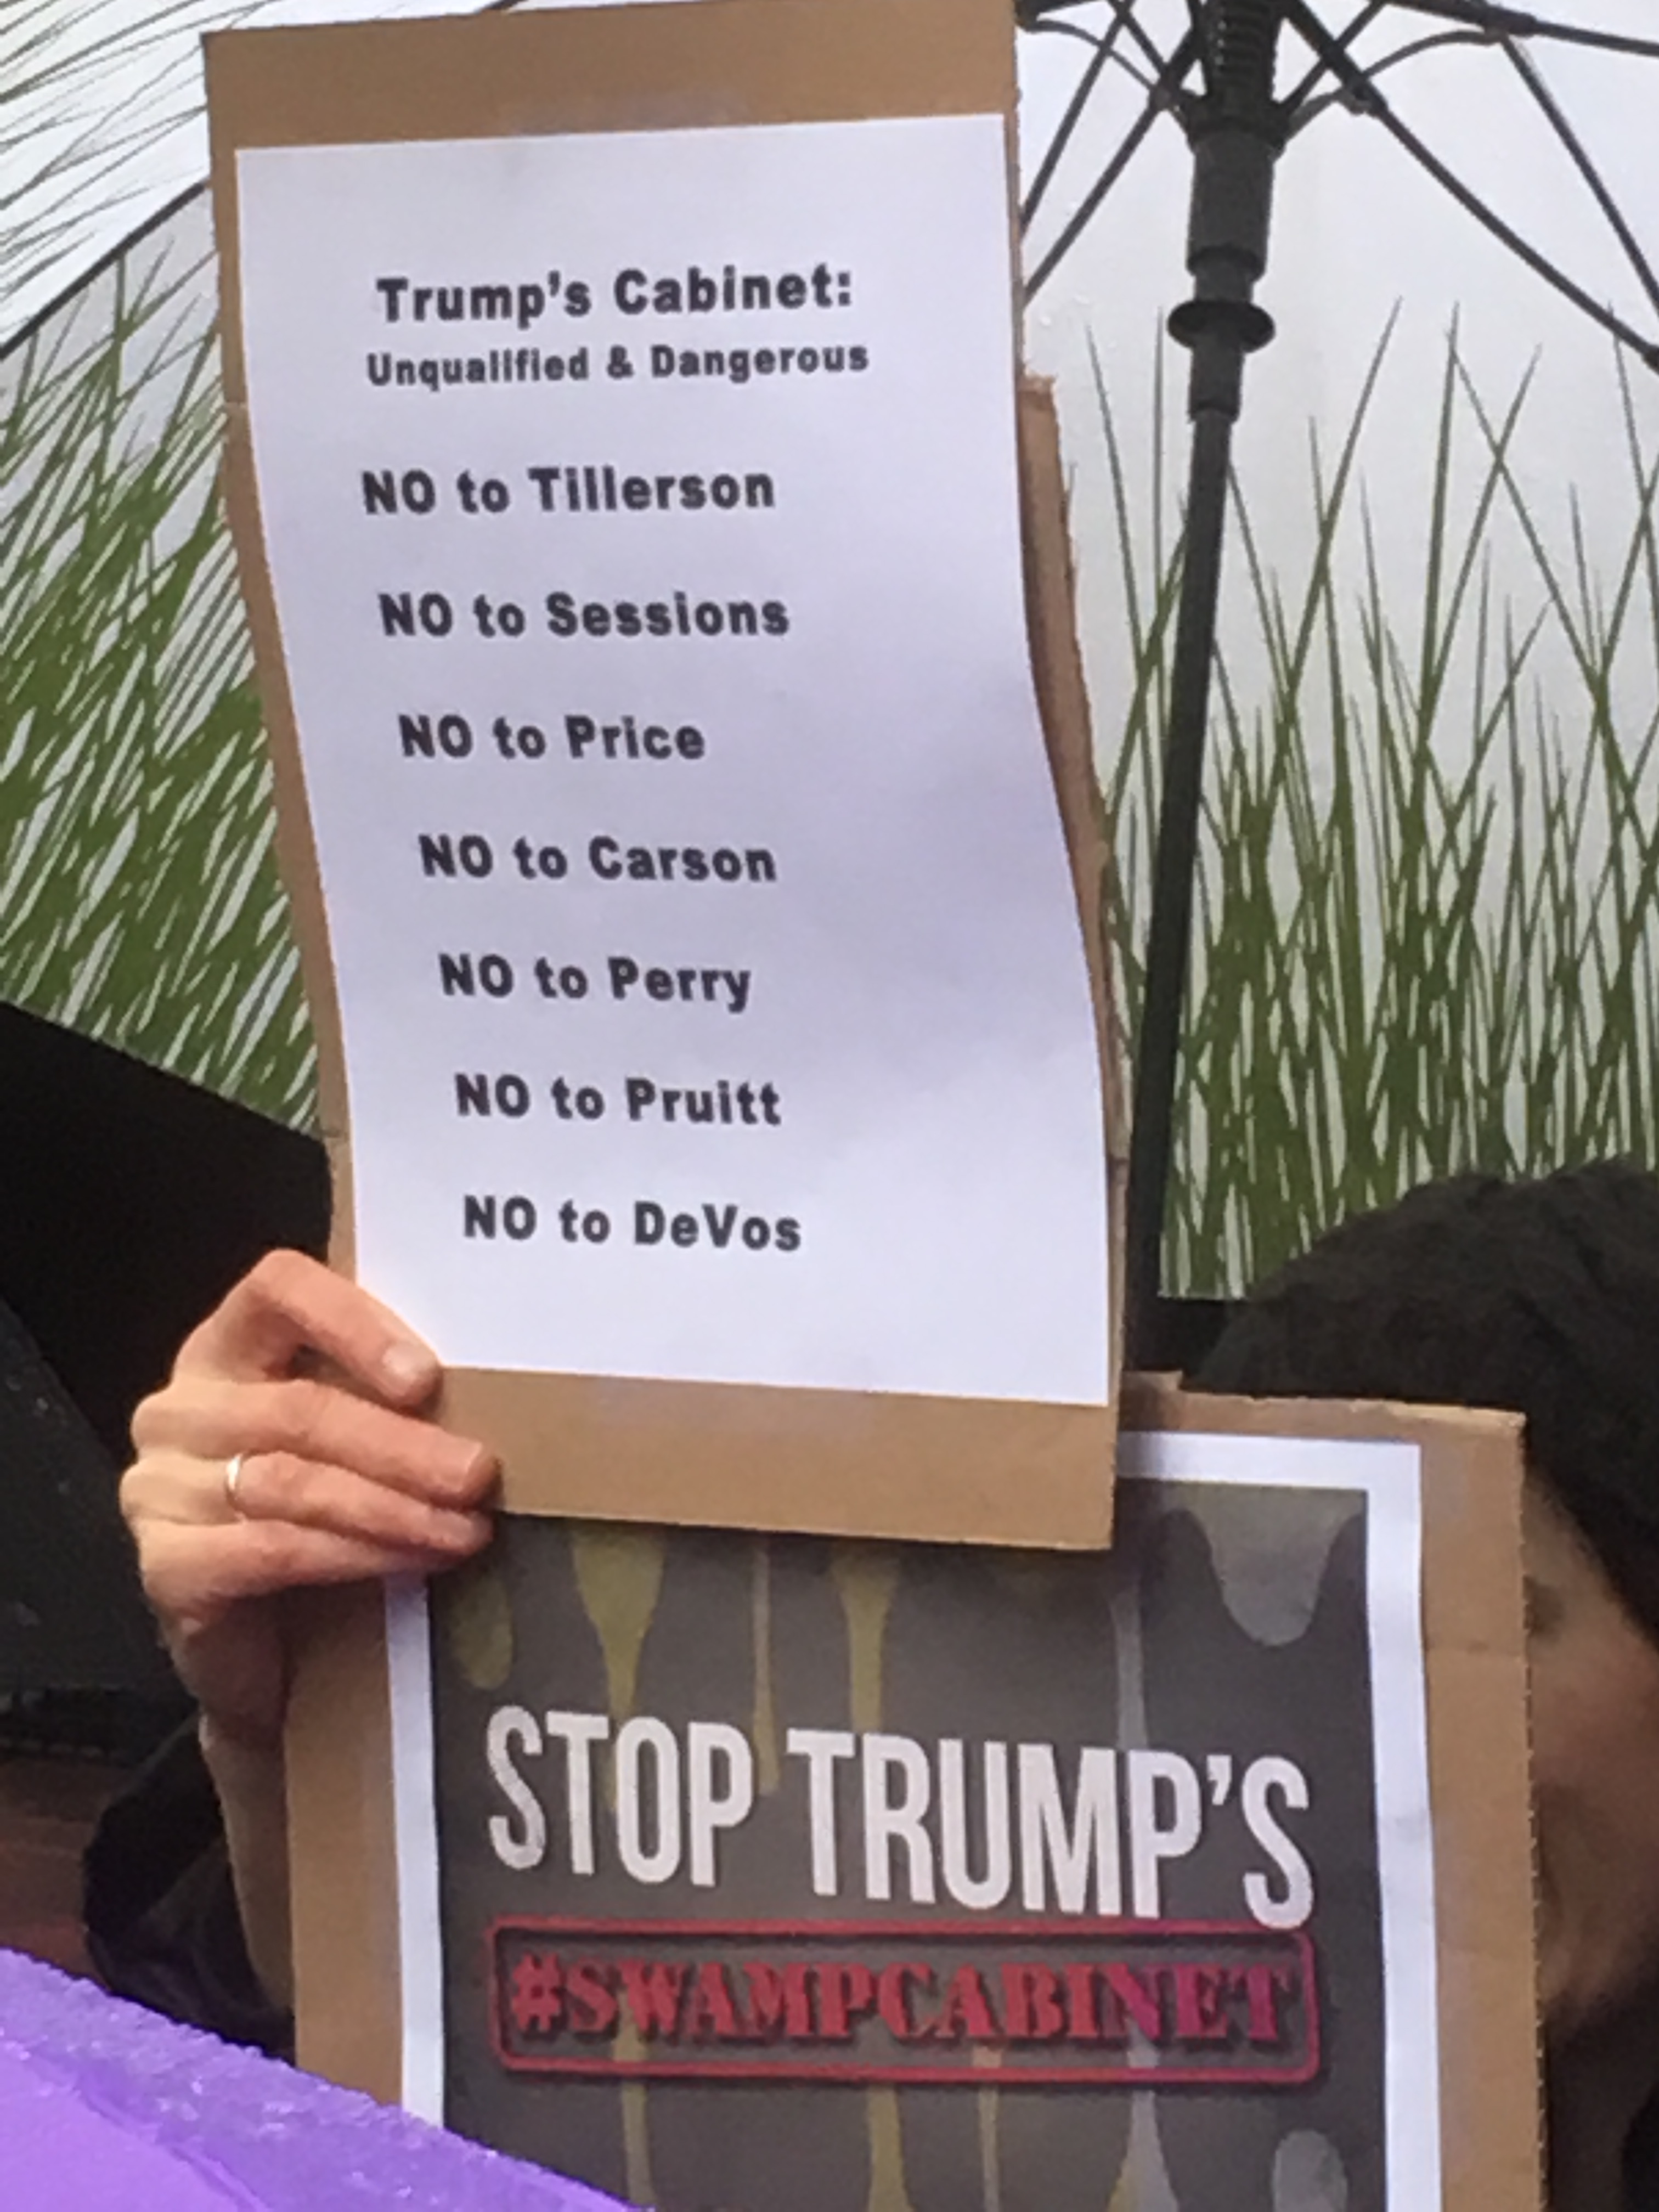 Trump's Cabinet:
Unqualified & Dangerous
NO to Tillerson
NO to Sessions
NO to Price
NO to Carson
NO to Perry
NO to Pruitt
NO to DeVos
STOP TRUMP'S
#SWAMPCABINET